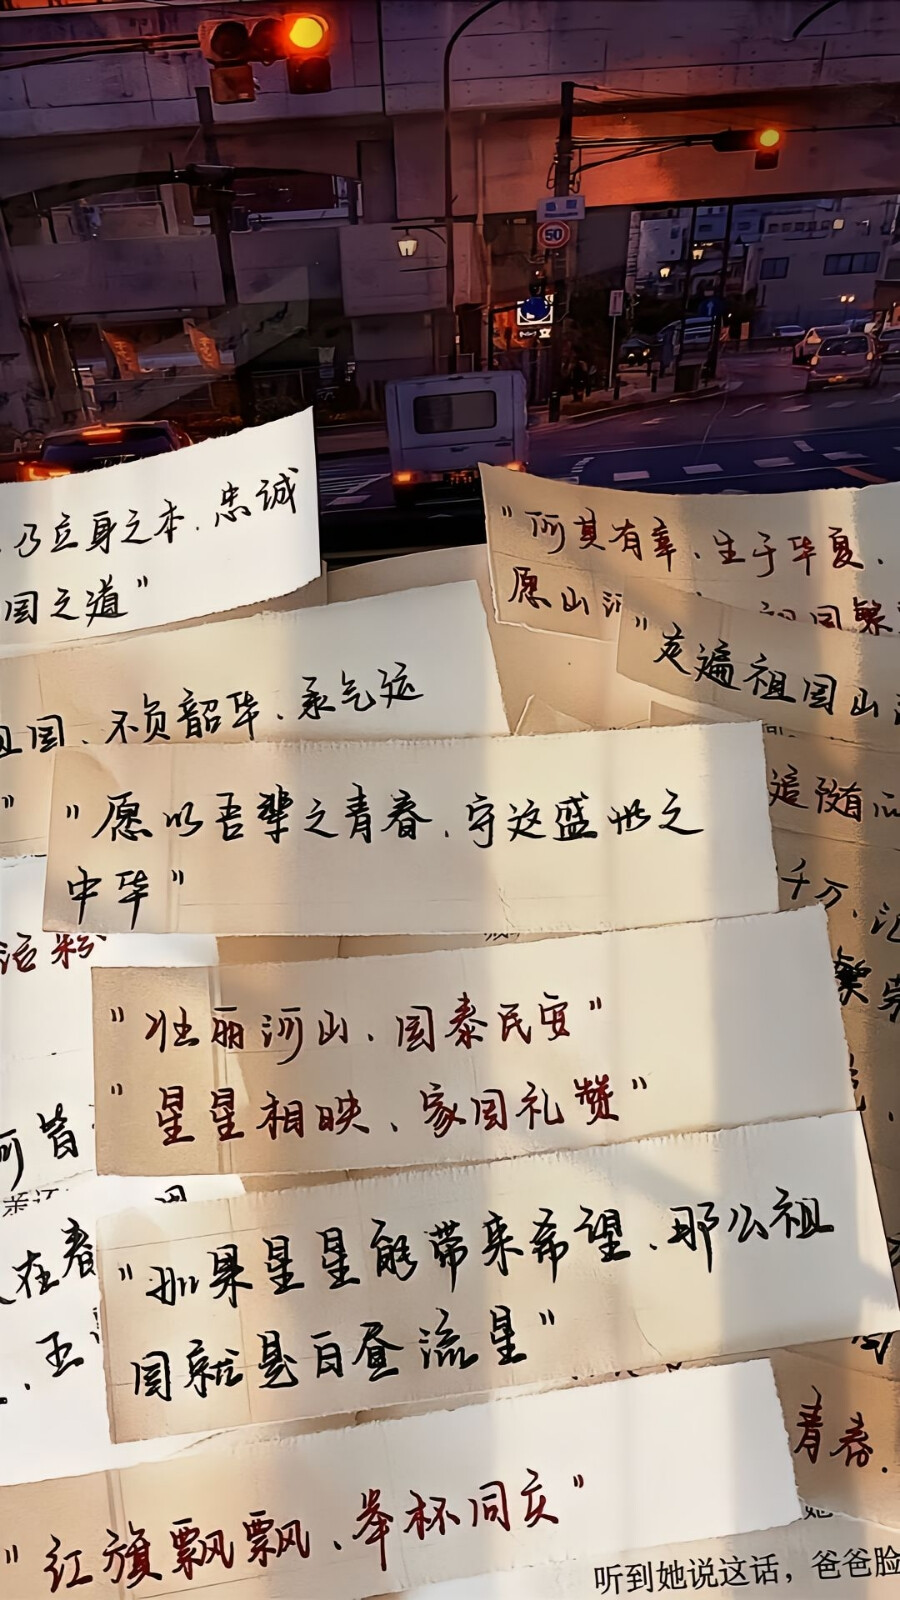 乃立身之本、忠诚
国之道”
“何其有幸、生于华夏、
愿山河
祖国繁
“走遍祖国山
祖国、不负韶华、承气运
“愿以吾辈之青春、守这盛世之
中华”
追随
千万、汇
繁荣
“壮丽河山、国泰民安”
“星星相映、家国礼赞”
河皆
在春
“如果星星能带来希望、那么祖
国就是白昼流星”
青春、
“红旗飘飘、举杯同庆”
听到她说这话，爸爸脸
50